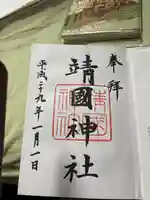 奉拝
靖國神社
平成二十九年一月一日